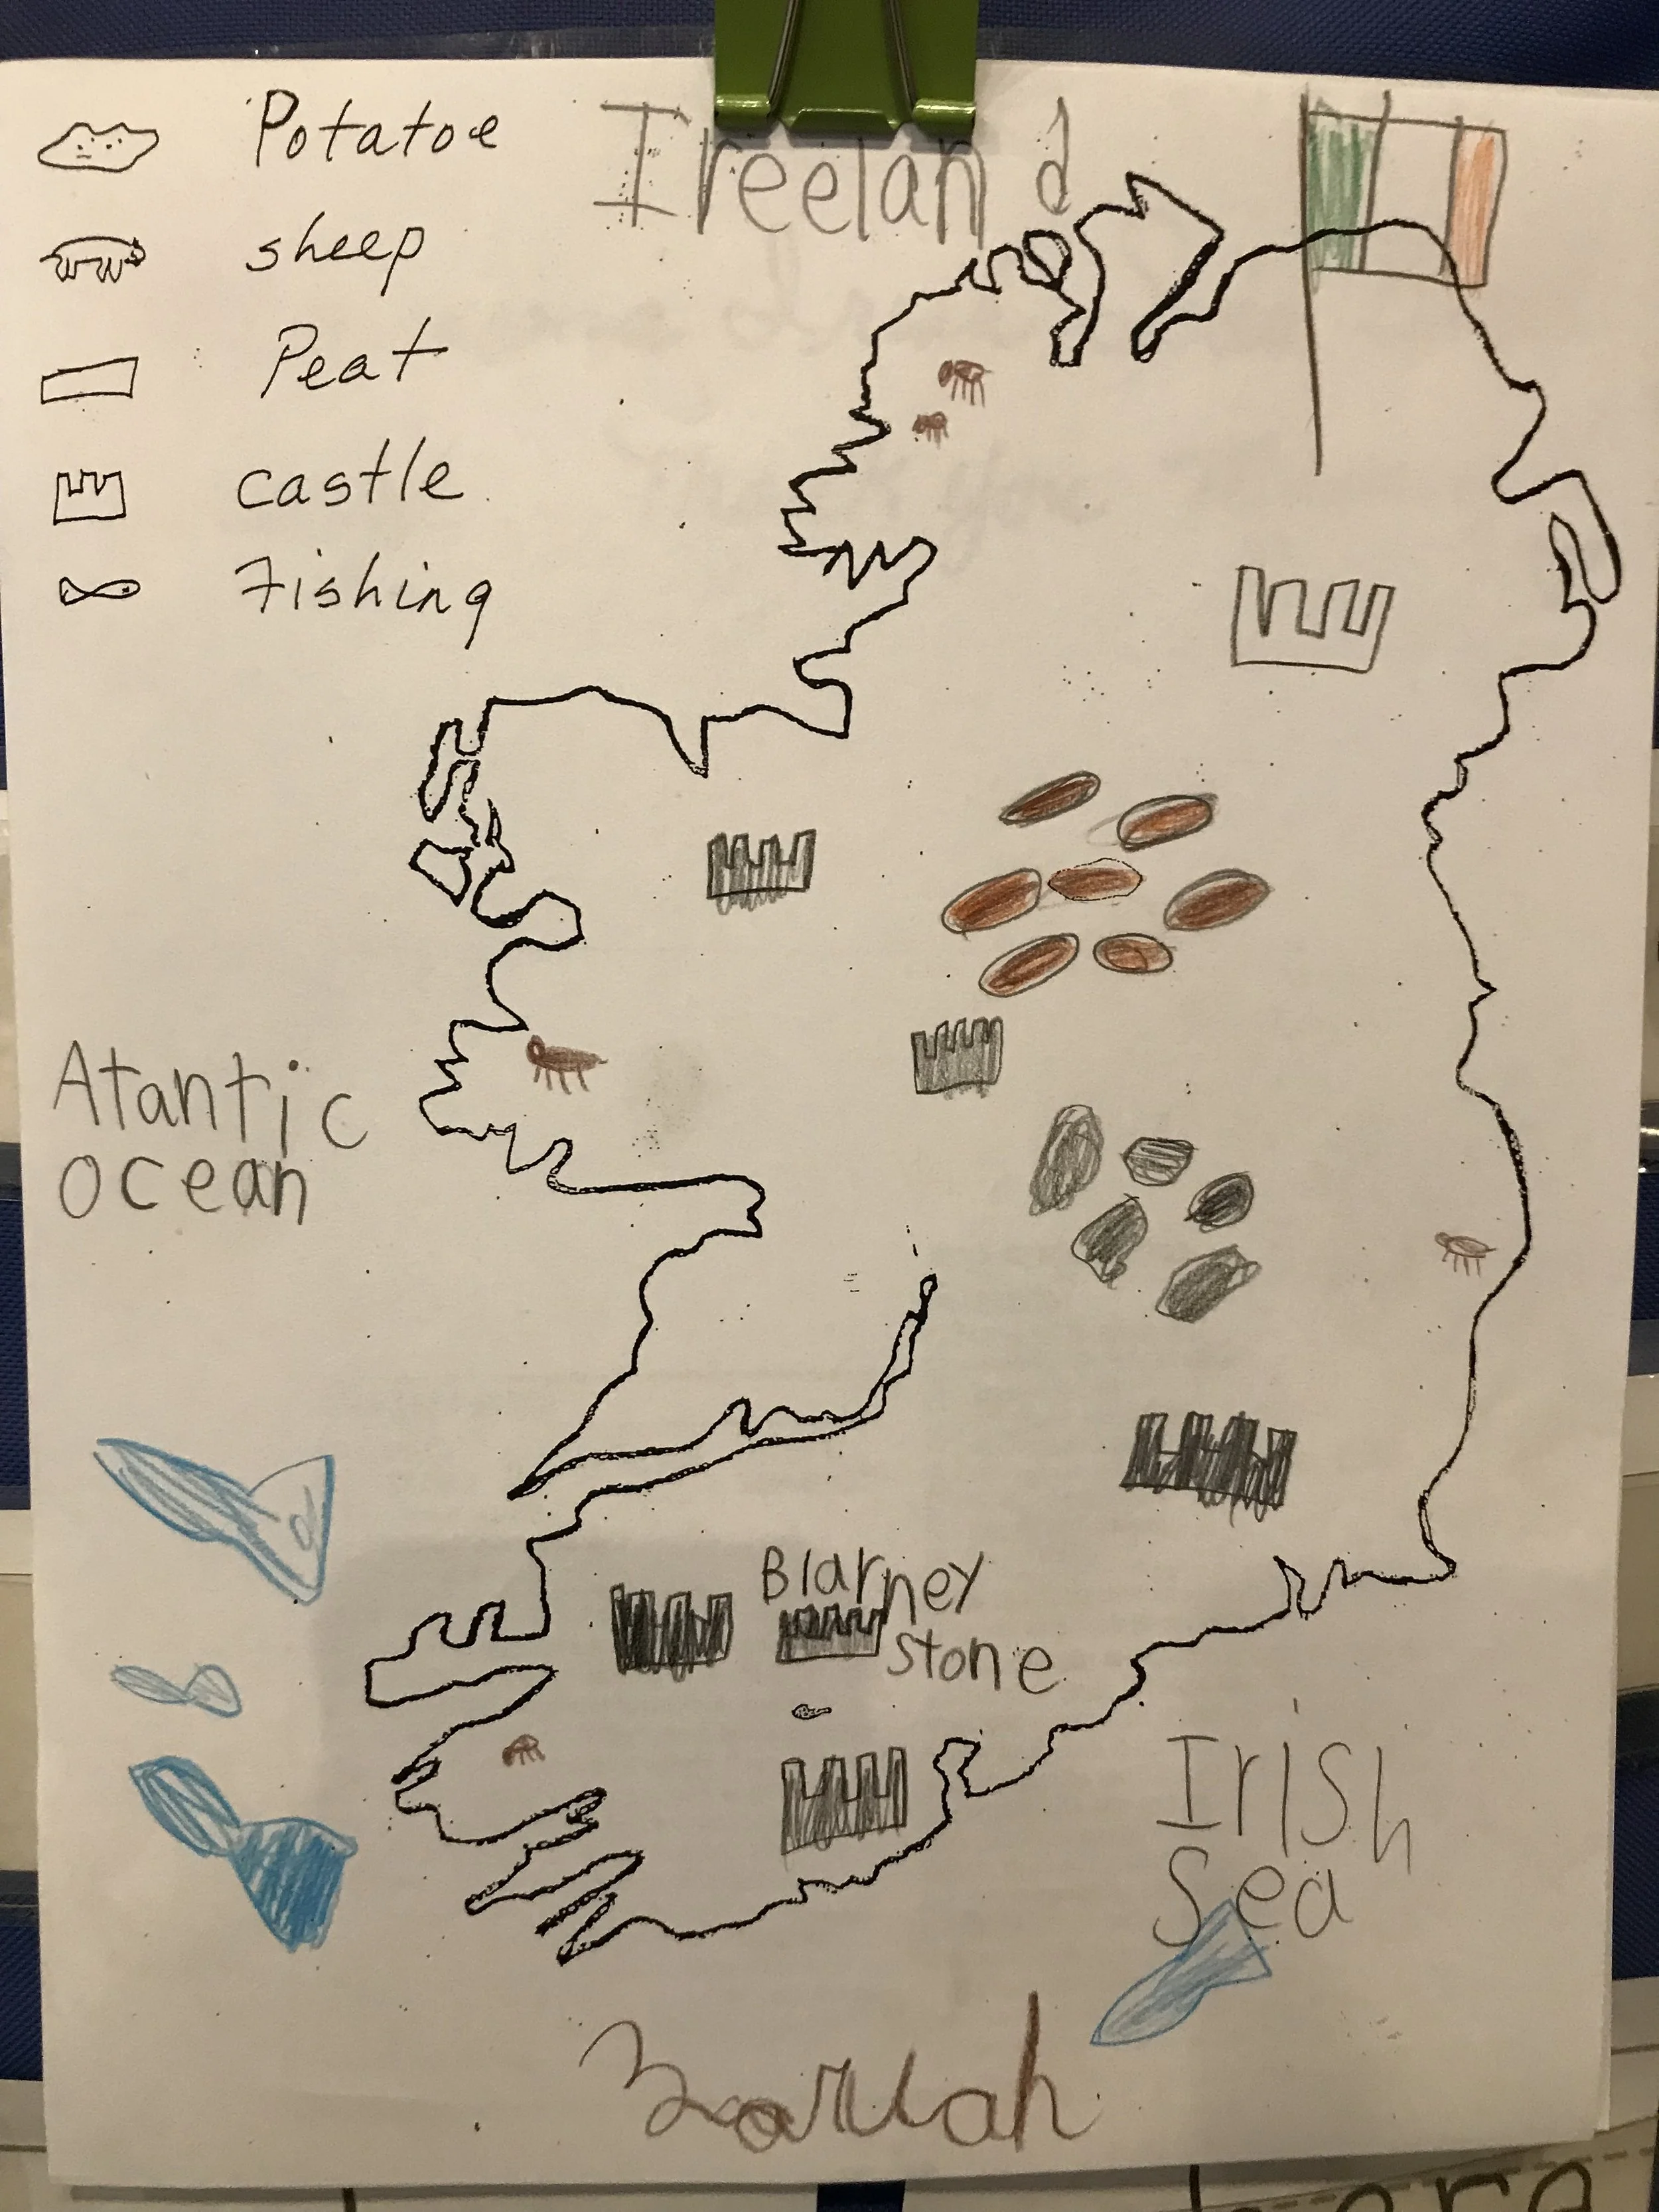 Ireeland
Potatoe
sheep
Peat
castle
Fishing
Atantic
ocean
Blarney
stone
Irish
Sea